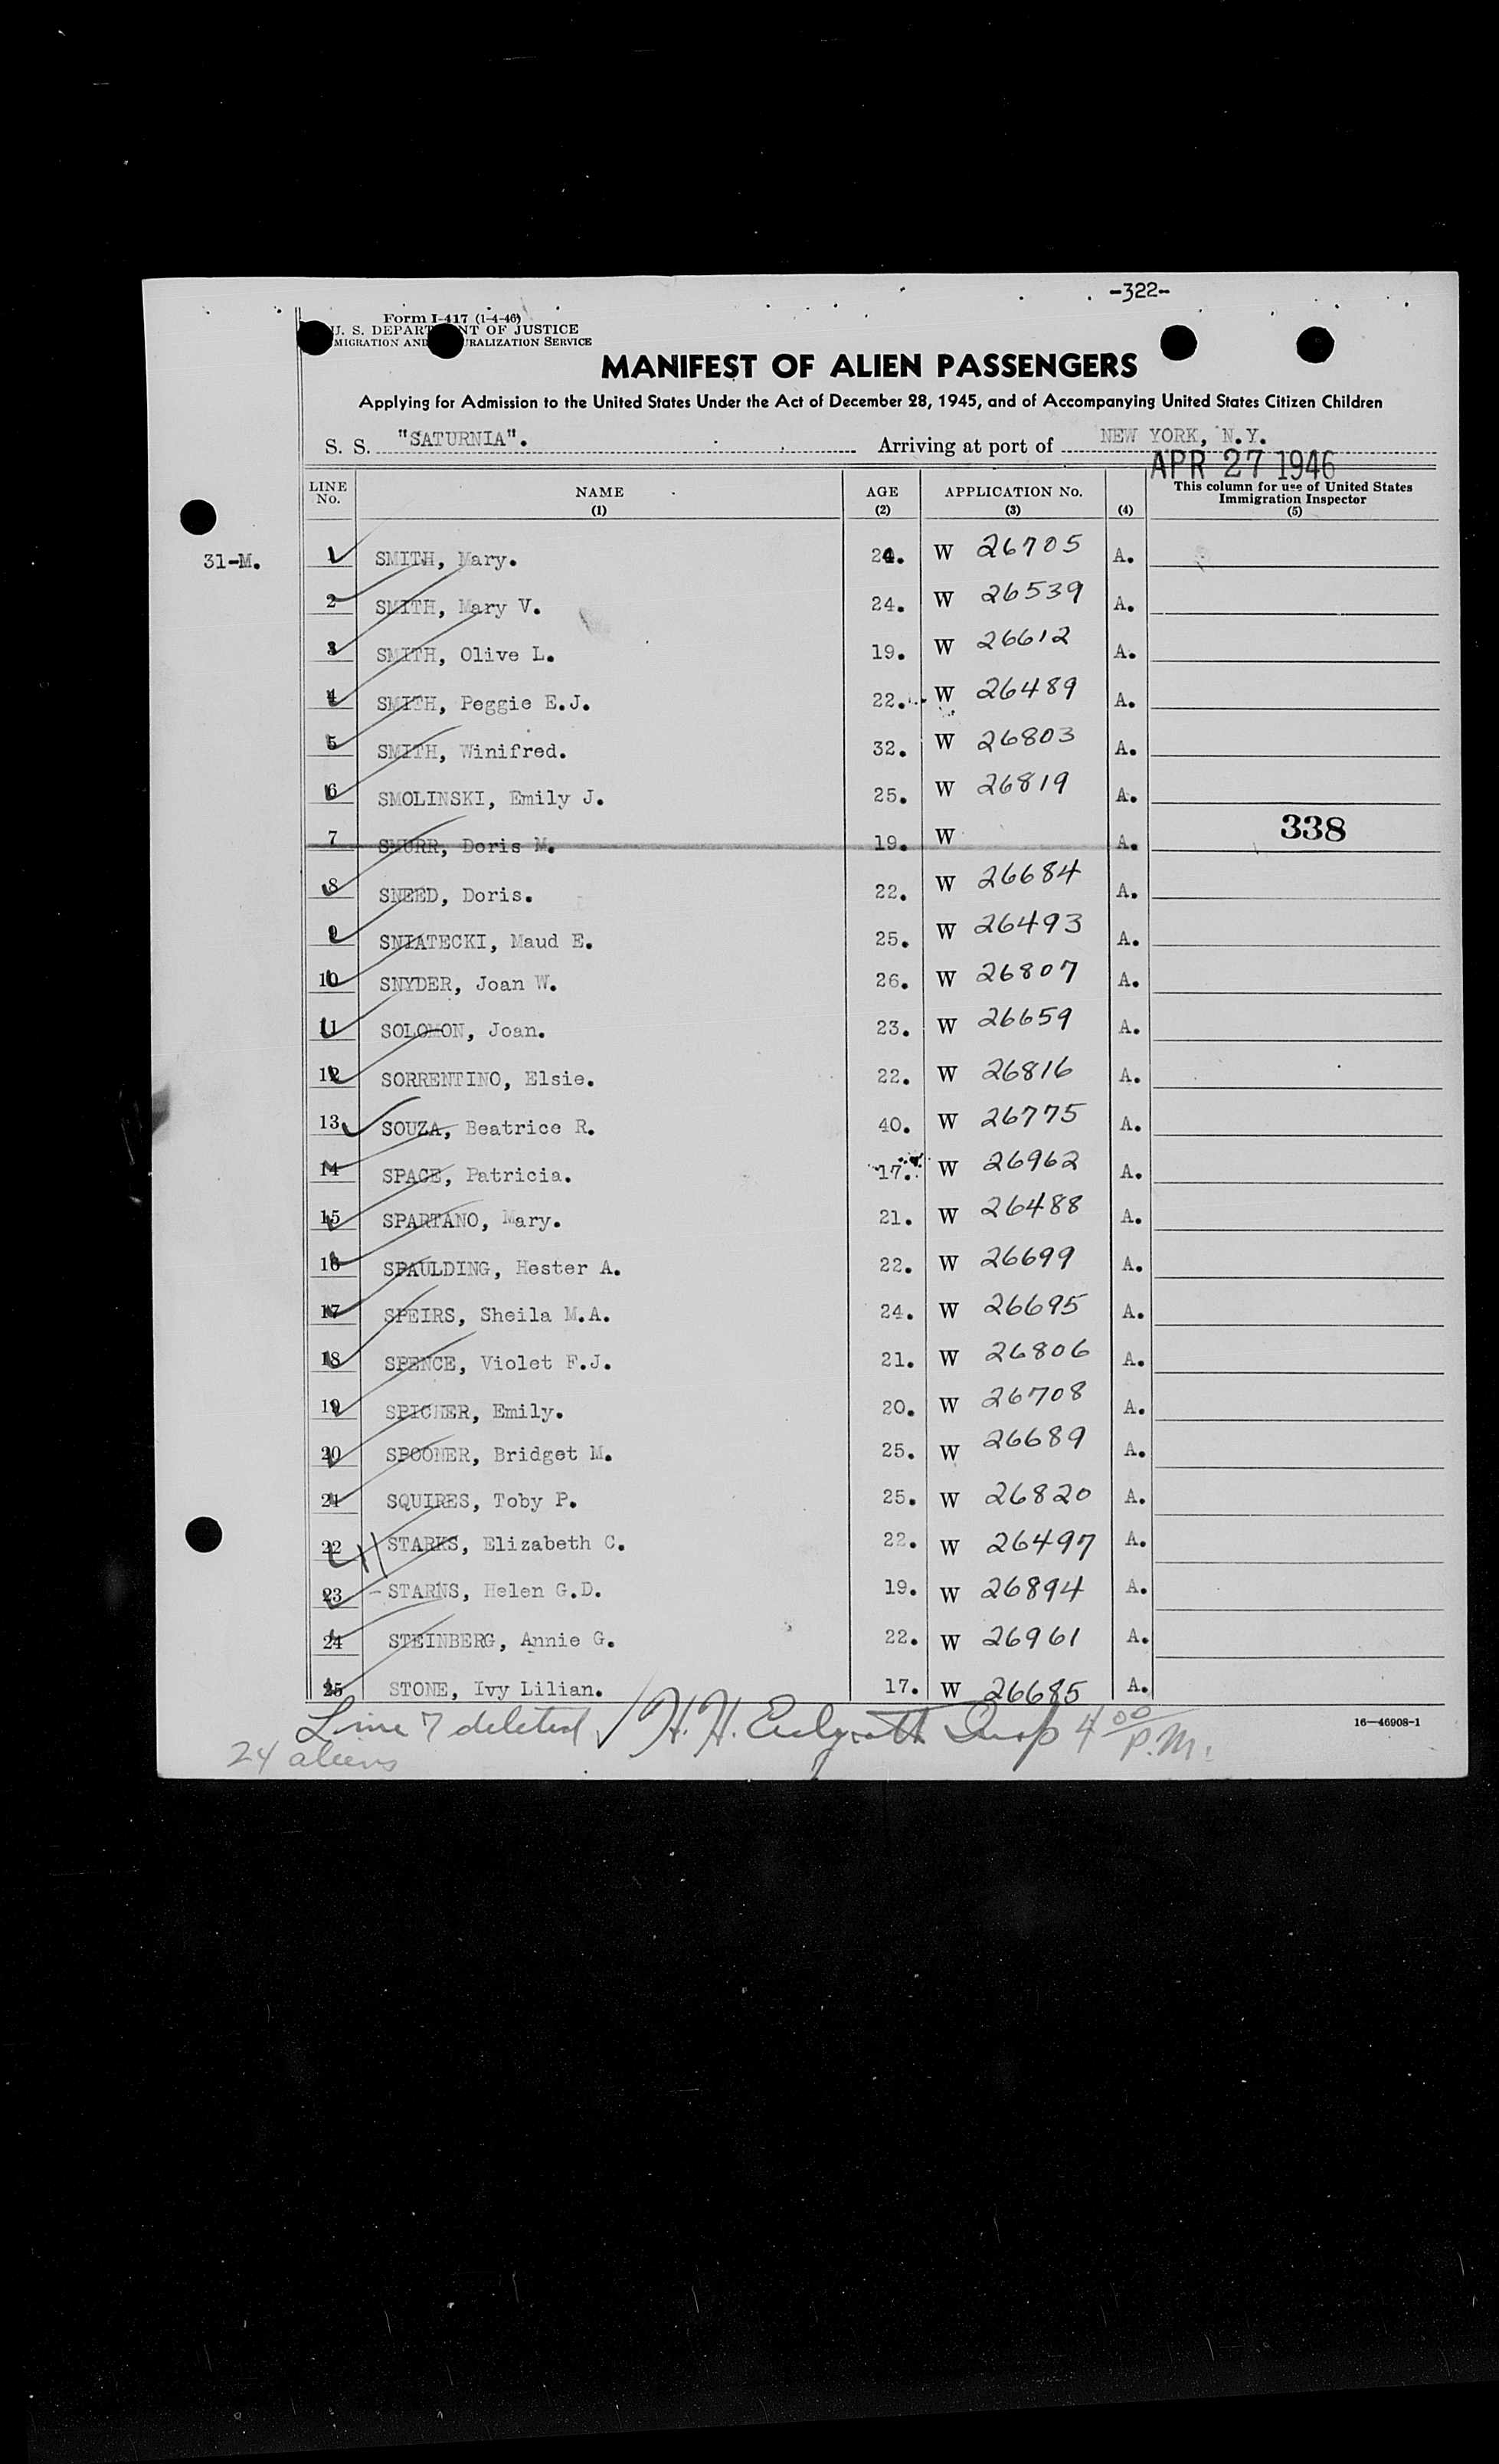 -322-
Form I-417 (1-4-46)
U. S. DEPARTMENT OF JUSTICE
MIGRATION AND NATURALIZATION SERVICE
MANIFEST OF ALIEN PASSENGERS
Applying for Admission to the United States Under the Act of December 28, 1945, and of Accompanying United States Citizen Children
S. S. "SATURNIA". Arriving at port of NEW YORK, N.Y.
APR 27 1946
LINE No. NAME (1) AGE (2) APPLICATION No. (3) (4) This column for use of United States Immigration Inspector (5)
31-M. 1 SMITH, Mary. 24. W 26705 A.
2 SMITH, Mary V. 24. W 26539 A.
3 SMITH, Olive L. 19. W 26612 A.
4 SMITH, Peggie E.J. 22. W 26489 A.
5 SMITH, Winifred. 32. W 26803 A.
6 SMOLINSKI, Emily J. 25. W 26819 A.
7 SMURR, Doris M. 19. W A. 338
8 SNEED, Doris. 22. W 26684 A.
9 SNIATECKI, Maud E. 25. W 26493 A.
10 SNYDER, Joan W. 26. W 26807 A.
11 SOLOMON, Joan. 23. W 26659 A.
12 SORRENTINO, Elsie. 22. W 26816 A.
13 SOUZA, Beatrice R. 40. W 26775 A.
14 SPACE, Patricia. 17. W 26962 A.
15 SPARTANO, Mary. 21. W 26488 A.
16 SPAULDING, Hester A. 22. W 26699 A.
17 SPEIRS, Sheila M.A. 24. W 26695 A.
18 SPENCE, Violet F.J. 21. W 26806 A.
19 SPICHER, Emily. 20. W 26708 A.
20 SPOONER, Bridget M. 25. W 26689 A.
21 SQUIRES, Toby P. 25. W 26820 A.
22 STARKS, Elizabeth C. 22. W 26497 A.
23 - STARNS, Helen G.D. 19. W 26894 A.
24 STEINBERG, Annie G. 22. W 26961 A.
25 STONE, Ivy Lilian. 17. W 26685 A.
Line 7 deleted H. H. Insp 4 00 P.M.
24 aliens
16—46908-1